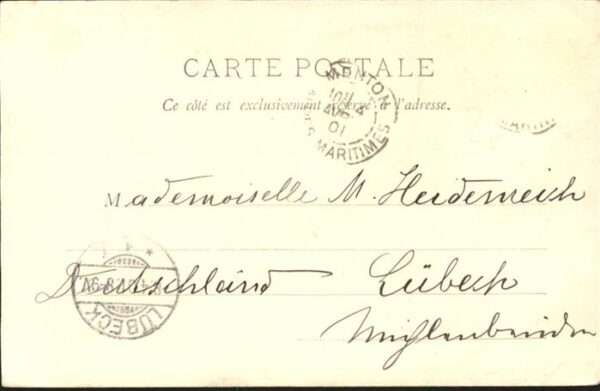 CARTE POSTALE
Ce côté est exclusivement réservé à l'adresse.
MENTON
10H
4
AVR
01
MARITIMES
Mademoiselle M. Heidenreich
Deutschland Lübeck
LÜBECK